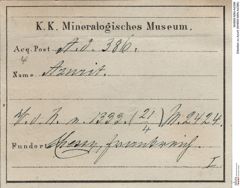 K. K. Mineralogisches Museum.
Acq. Post A. d. 386.
Name Azurit.
V. d. N. n. 1333. (21/4) M. 2424.
Fundort Chessy, Frankreich.
I.